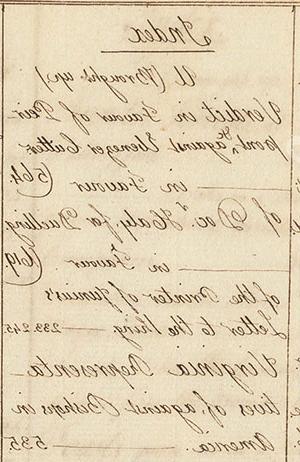 Index
U (Brought up)
Verdict in Favour of Peir-
pont & against Ebenezer Cutler
in Favour (564.
of Doc.r Healy, for Duelling
in Favour (619.
of the Printer of Junius's
Letter to the King 239.245.
Virginia Representa-
tives of, against Bishops in
America. 535